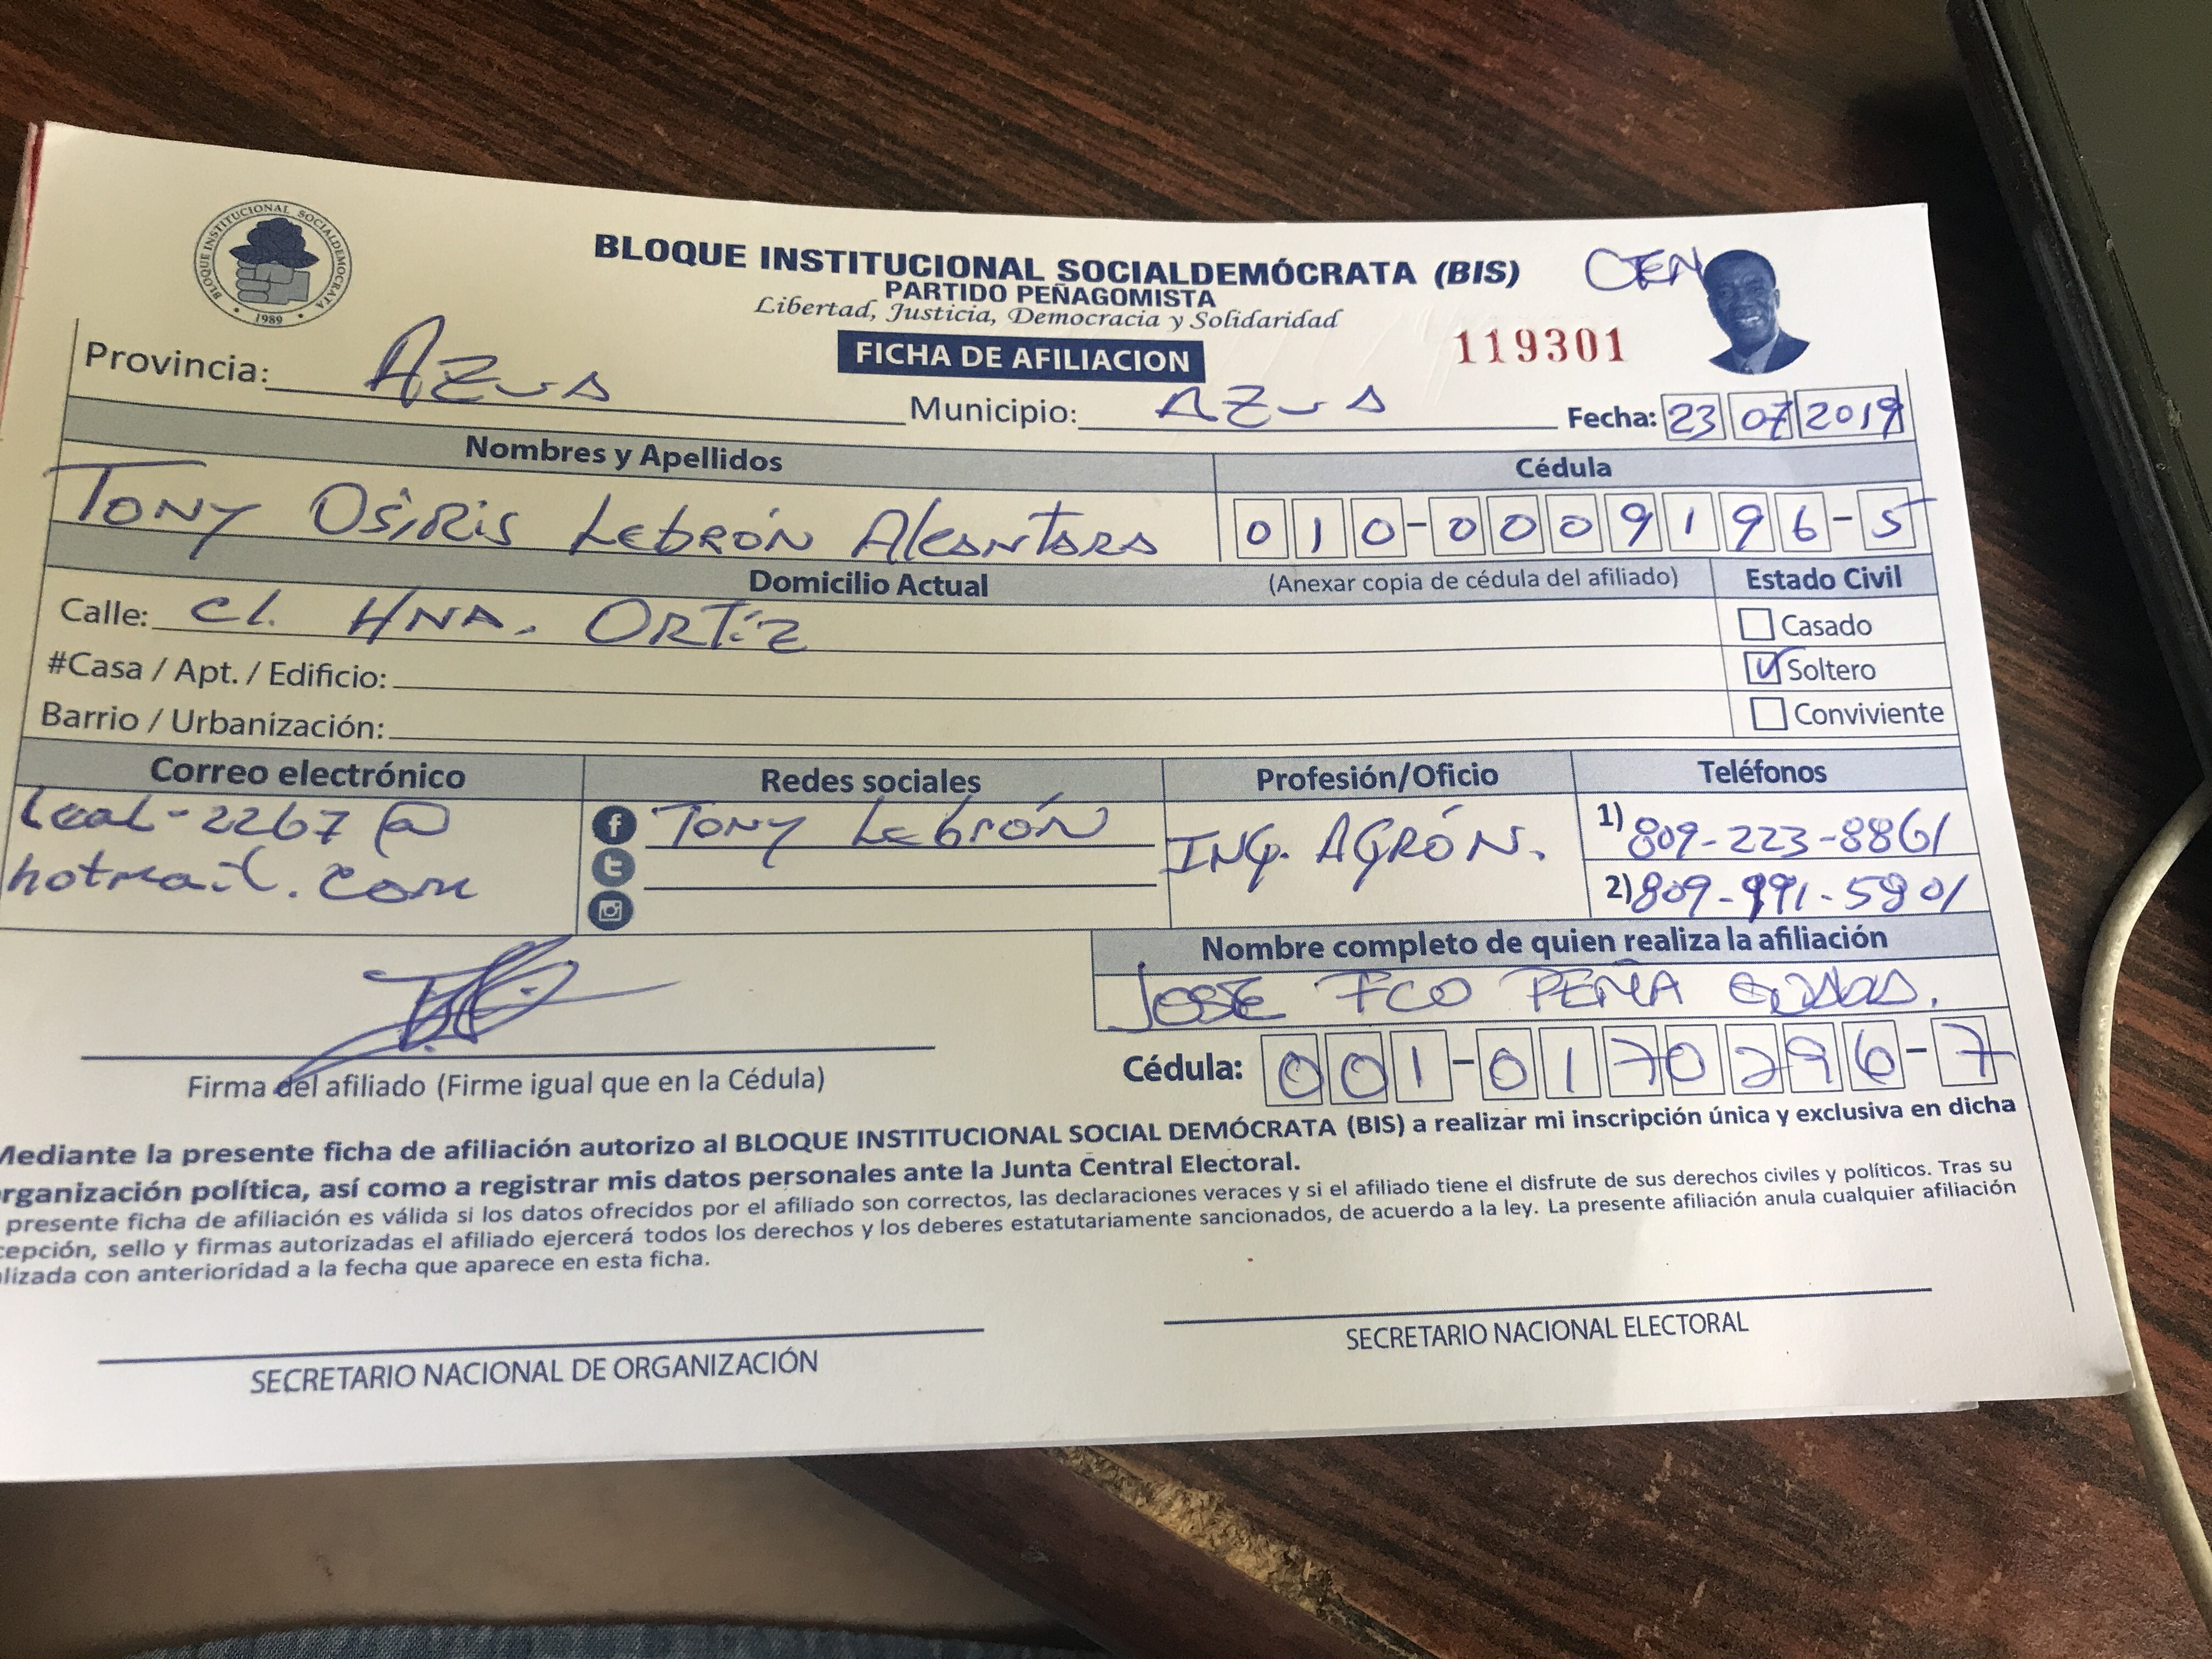 BLOQUE INSTITUCIONAL SOCIALDEMÓCRATA
1989
BLOQUE INSTITUCIONAL SOCIALDEMÓCRATA (BIS)
PARTIDO PEÑAGOMISTA
Libertad, Justicia, Democracia y Solidaridad
CEN
FICHA DE AFILIACION
119301
Provincia: AZUA Municipio: AZUA Fecha: 23 07 2019
Nombres y Apellidos Cédula
TONY OSIRIS LEBRÓN ALCANTARA 010-0009196-5
Domicilio Actual (Anexar copia de cédula del afiliado) Estado Civil
Calle: Cl. HNA. ORTIZ Casado
#Casa / Apt. / Edificio: Soltero
Barrio / Urbanización: Conviviente
Correo electrónico Redes sociales Profesión/Oficio Teléfonos
leal-2267@ TONY LEBRÓN ING. AGRÓN. 1) 809-223-8861
hotmail.com 2) 809-991-5801
Nombre completo de quien realiza la afiliación
JOSE FCO PEÑA
Cédula: 001-0170296-7
Firma del afiliado (Firme igual que en la Cédula)
Mediante la presente ficha de afiliación autorizo al BLOQUE INSTITUCIONAL SOCIAL DEMÓCRATA (BIS) a realizar mi inscripción única y exclusiva en dicha
rganización política, así como a registrar mis datos personales ante la Junta Central Electoral.
presente ficha de afiliación es válida si los datos ofrecidos por el afiliado son correctos, las declaraciones veraces y si el afiliado tiene el disfrute de sus derechos civiles y políticos. Tras su
cepción, sello y firmas autorizadas el afiliado ejercerá todos los derechos y los deberes estatutariamente sancionados, de acuerdo a la ley. La presente afiliación anula cualquier afiliación
alizada con anterioridad a la fecha que aparece en esta ficha.
SECRETARIO NACIONAL DE ORGANIZACIÓN SECRETARIO NACIONAL ELECTORAL